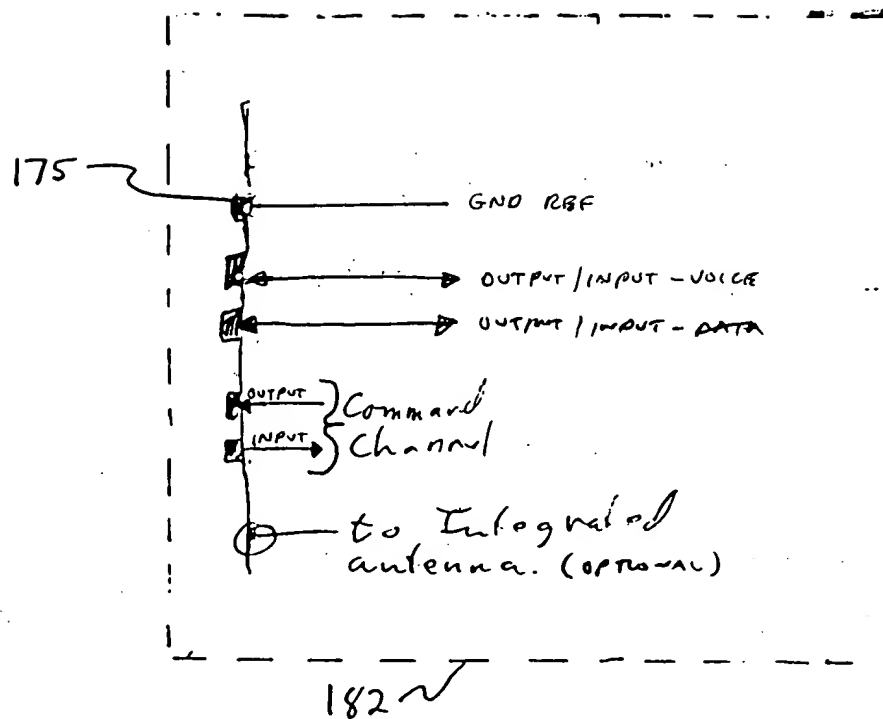 175
GND REF
OUTPUT/INPUT-VOICE
OUTPUT/INPUT-DATA
OUTPUT
INPUT
Command
Channel
to Integrated
antenna. (OPTIONAL)
182